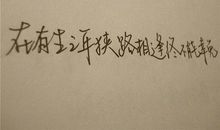 在有生之年狭路相逢终不能幸免